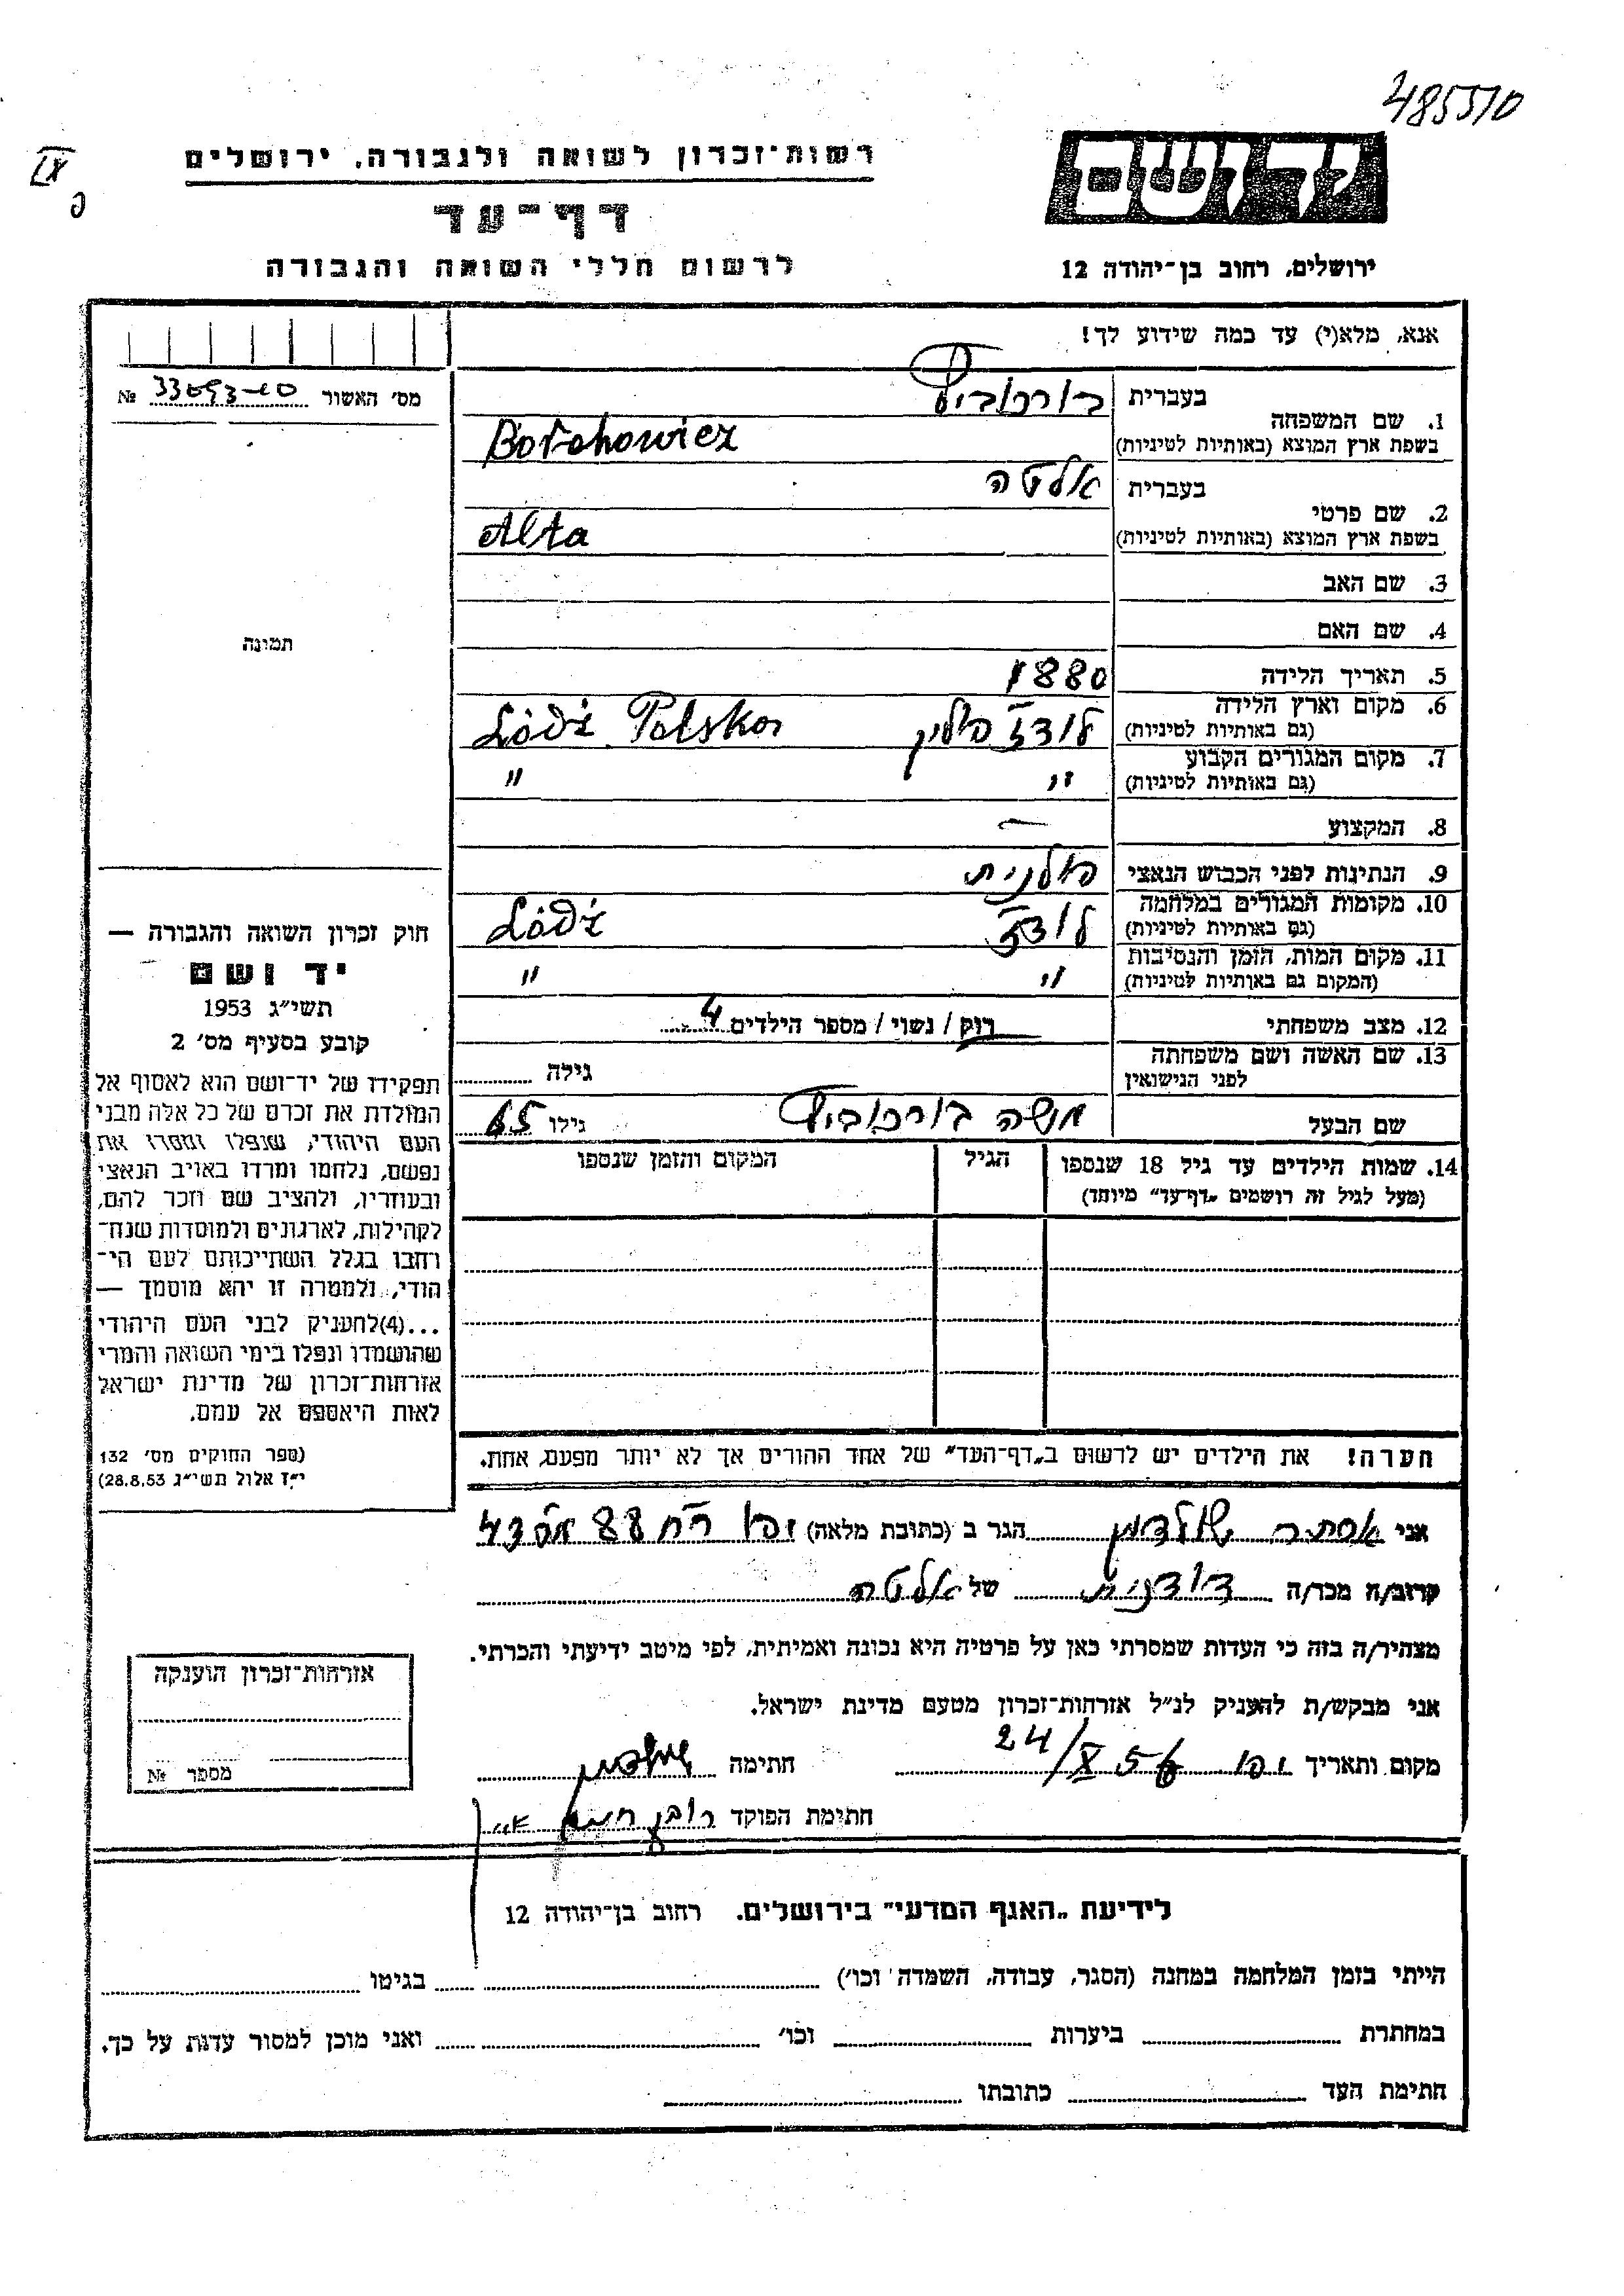 485510
IX
רשות־זכרון לשואה ולגבורה, ירושלים
דף־עד
לרשום חללי השואה והגבורה
יד ושם
ירושלים, רחוב בן־יהודה 12
אנא, מלא(י) עד כמה שידוע לך!
מס׳ האשור №
1. שם המשפחה
בעברית בורכוביץ
בשפת ארץ המוצא (באותיות לטיניות) Borohowicz
2. שם פרטי
בעברית אלטה
בשפת ארץ המוצא (באותיות לטיניות) Alta
3. שם האב
4. שם האם
5. תאריך הלידה 1880
6. מקום וארץ הלידה
(גם באותיות לטיניות) לודז פולין Łódź Polska
7. מקום המגורים הקבוע
(גם באותיות לטיניות) " "
8. המקצוע —
9. הנתינות לפני הכבוש הנאצי פולנית
10. מקומות המגורים במלחמה
(גם באותיות לטיניות) לודז Łódź
11. מקום המות, הזמן והנסיבות
(המקום גם באותיות לטיניות) " "
12. מצב משפחתי רוק / נשוי / מספר הילדים 4
13. שם האשה ושם משפחתה
לפני הנישואין גילה
שם הבעל משה בורכוביץ גילו 65
14. שמות הילדים עד גיל 18 שנספו הגיל המקום והזמן שנספו
(מעל לגיל זה רושמים „דף־עד" מיוחד)
תמונה
חוק זכרון השואה והגבורה —
יד ושם
תשי״ג 1953
קובע בסעיף מס׳ 2
תפקידו של יד־ושם הוא לאסוף אל
המולדת את זכרם של כל אלה מבני
העם היהודי, שנפלו ומסרו את
נפשם, נלחמו ומרדו באויב הנאצי
ובעוזריו, ולהציב שם וזכר להם,
לקהילות, לארגונים ולמוסדות שנח־
רחבו בגלל השתייכותם לעם הי־
הודי, ולמטרה זו יהא מוסמך —
...(4)להעניק לבני העם היהודי
שהושמדו ונפלו בימי השואה והמרי
אזרחות־זכרון של מדינת ישראל
לאות היאספם אל עמם.
(ספר החוקים מס׳ 132
י״ז אלול תשי״ג 28.8.53)
הערה! את הילדים יש לרשום ב„דף־העד" של אחד ההורים אך לא יותר מפעם אחת.
אני אסתר הגר ב (כתובת מלאה) יפו רח 88
קרוב/ה מכר/ה דודנית של אלטה
מצהיר/ה בזה כי העדות שמסרתי כאן על פרטיה היא נכונה ואמיתית, לפי מיטב ידיעתי והכרתי.
אני מבקש/ת להעניק לנ״ל אזרחות־זכרון מטעם מדינת ישראל.
מקום ותאריך יפו 24/X 56 חתימה
חתימת הפוקד
אזרחות־זכרון הוענקה
מספר №
לידיעת „האגף המדעי" בירושלים. רחוב בן־יהודה 12
הייתי בזמן המלחמה במחנה (הסגר, עבודה, השמדה וכו׳) בגיטו
במחתרת ביערות וכו׳ ואני מוכן למסור עדות על כך.
חתימת העד כתובתו